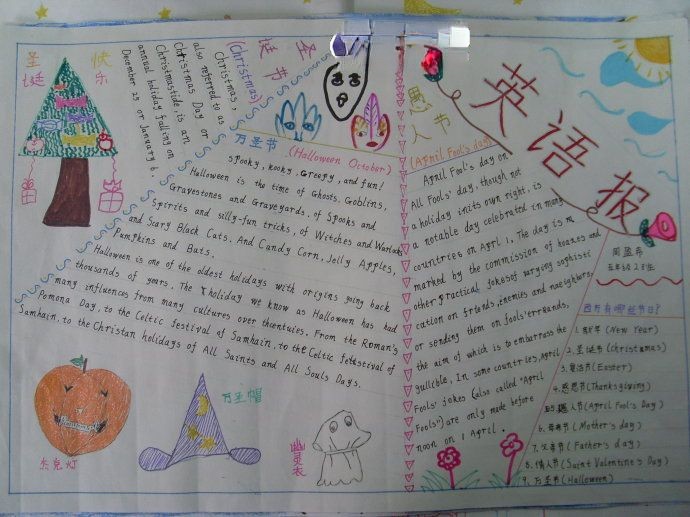 圣诞
快乐
圣诞节
(Christmas)
Christmas,
also referred to as
Christmas Day or
Christmastide, is an
annual holiday falling on
December 25 or January 6.
万圣节
(Halloween October)
spooky, kooky, creepy, and fun!
Halloween is the time of Ghosts, Goblins,
Gravestones and Graveyards. of Spooks and
Spirits and silly-fun tricks, of Witches and Warlocks
and Scary Black Cats. And Candy Corn, Jelly Apples,
Pumpkins and Bats.
Halloween is one of the oldest holidays with origins going back
thousands of years. The holiday we know as Halloween has had
many influences from many cultures over the
From the Roman's
Pomona Day, to the Celtic festival of Samhain, to the Celtic festival of
Samhain, to the Christan holidays of All Saints and All Souls Days.
杰克灯
万圣帽
幽灵衣
愚人节
(April Fool's day)
April Fool's day on
All Fools' day, though not
a holiday in its own right, is
a notable day celebrated in many
countries on April 1, The day is
marked by the commission of hoaxes and
other practical jokes of varying sophisti
cation on friends, enemies and
or sending them on fools' errands,
the aim of which is to embarrass the
gullible, In some countries, April
Fools' jokes (also called "April
Fools") are only made before
noon on 1 April.
英语报
西方有哪些节日?
1. 新年 (New Year)
2. 圣诞节 (christmas)
3. 复活节 (Easter)
4. 感恩节 (Thanksgiving)
人节 (April Fool's Day)
6. 母亲节 (Mother's day)
7. 父亲节 (Father's day)
8. 情人节 (Saint Valentine's Day)
9. 万圣节 (Halloween)